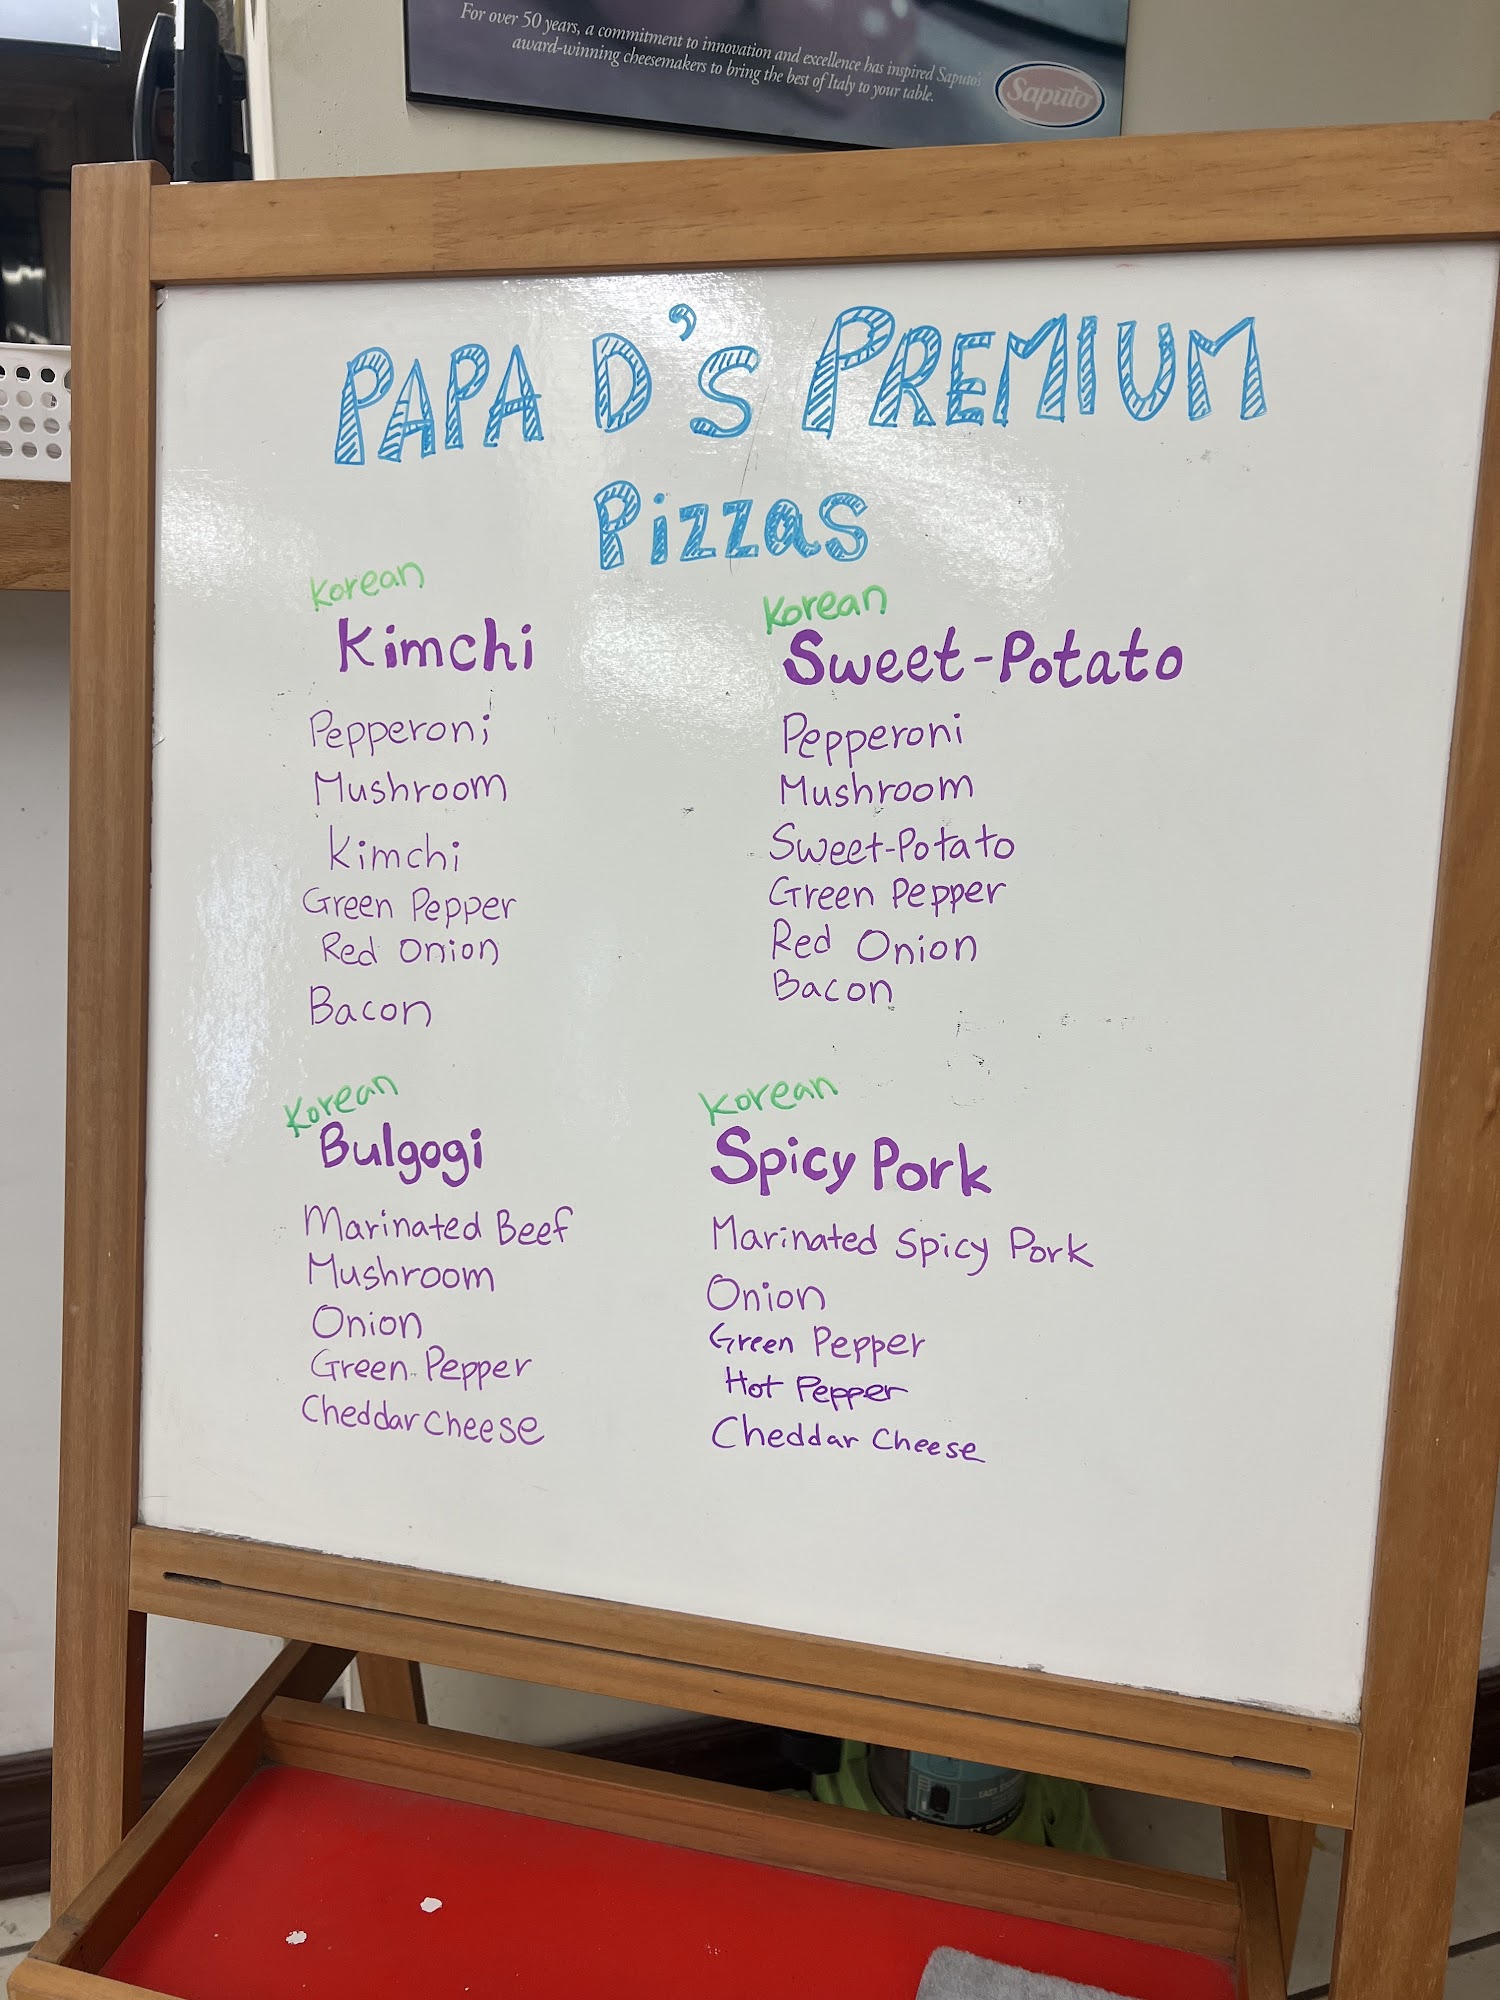 For over 50 years, a commitment to innovation and excellence has inspired Saputo's
award-winning cheesemakers to bring the best of Italy to your table.
Saputo
PAPA D'S PREMIUM
Pizzas
Korean
Kimchi
Pepperoni
Mushroom
Kimchi
Green Pepper
Red Onion
Bacon
Korean
Sweet-Potato
Pepperoni
Mushroom
Sweet-Potato
Green Pepper
Red Onion
Bacon
Korean
Bulgogi
Marinated Beef
Mushroom
Onion
Green Pepper
Cheddar Cheese
Korean
Spicy Pork
Marinated Spicy Pork
Onion
Green Pepper
Hot Pepper
Cheddar Cheese